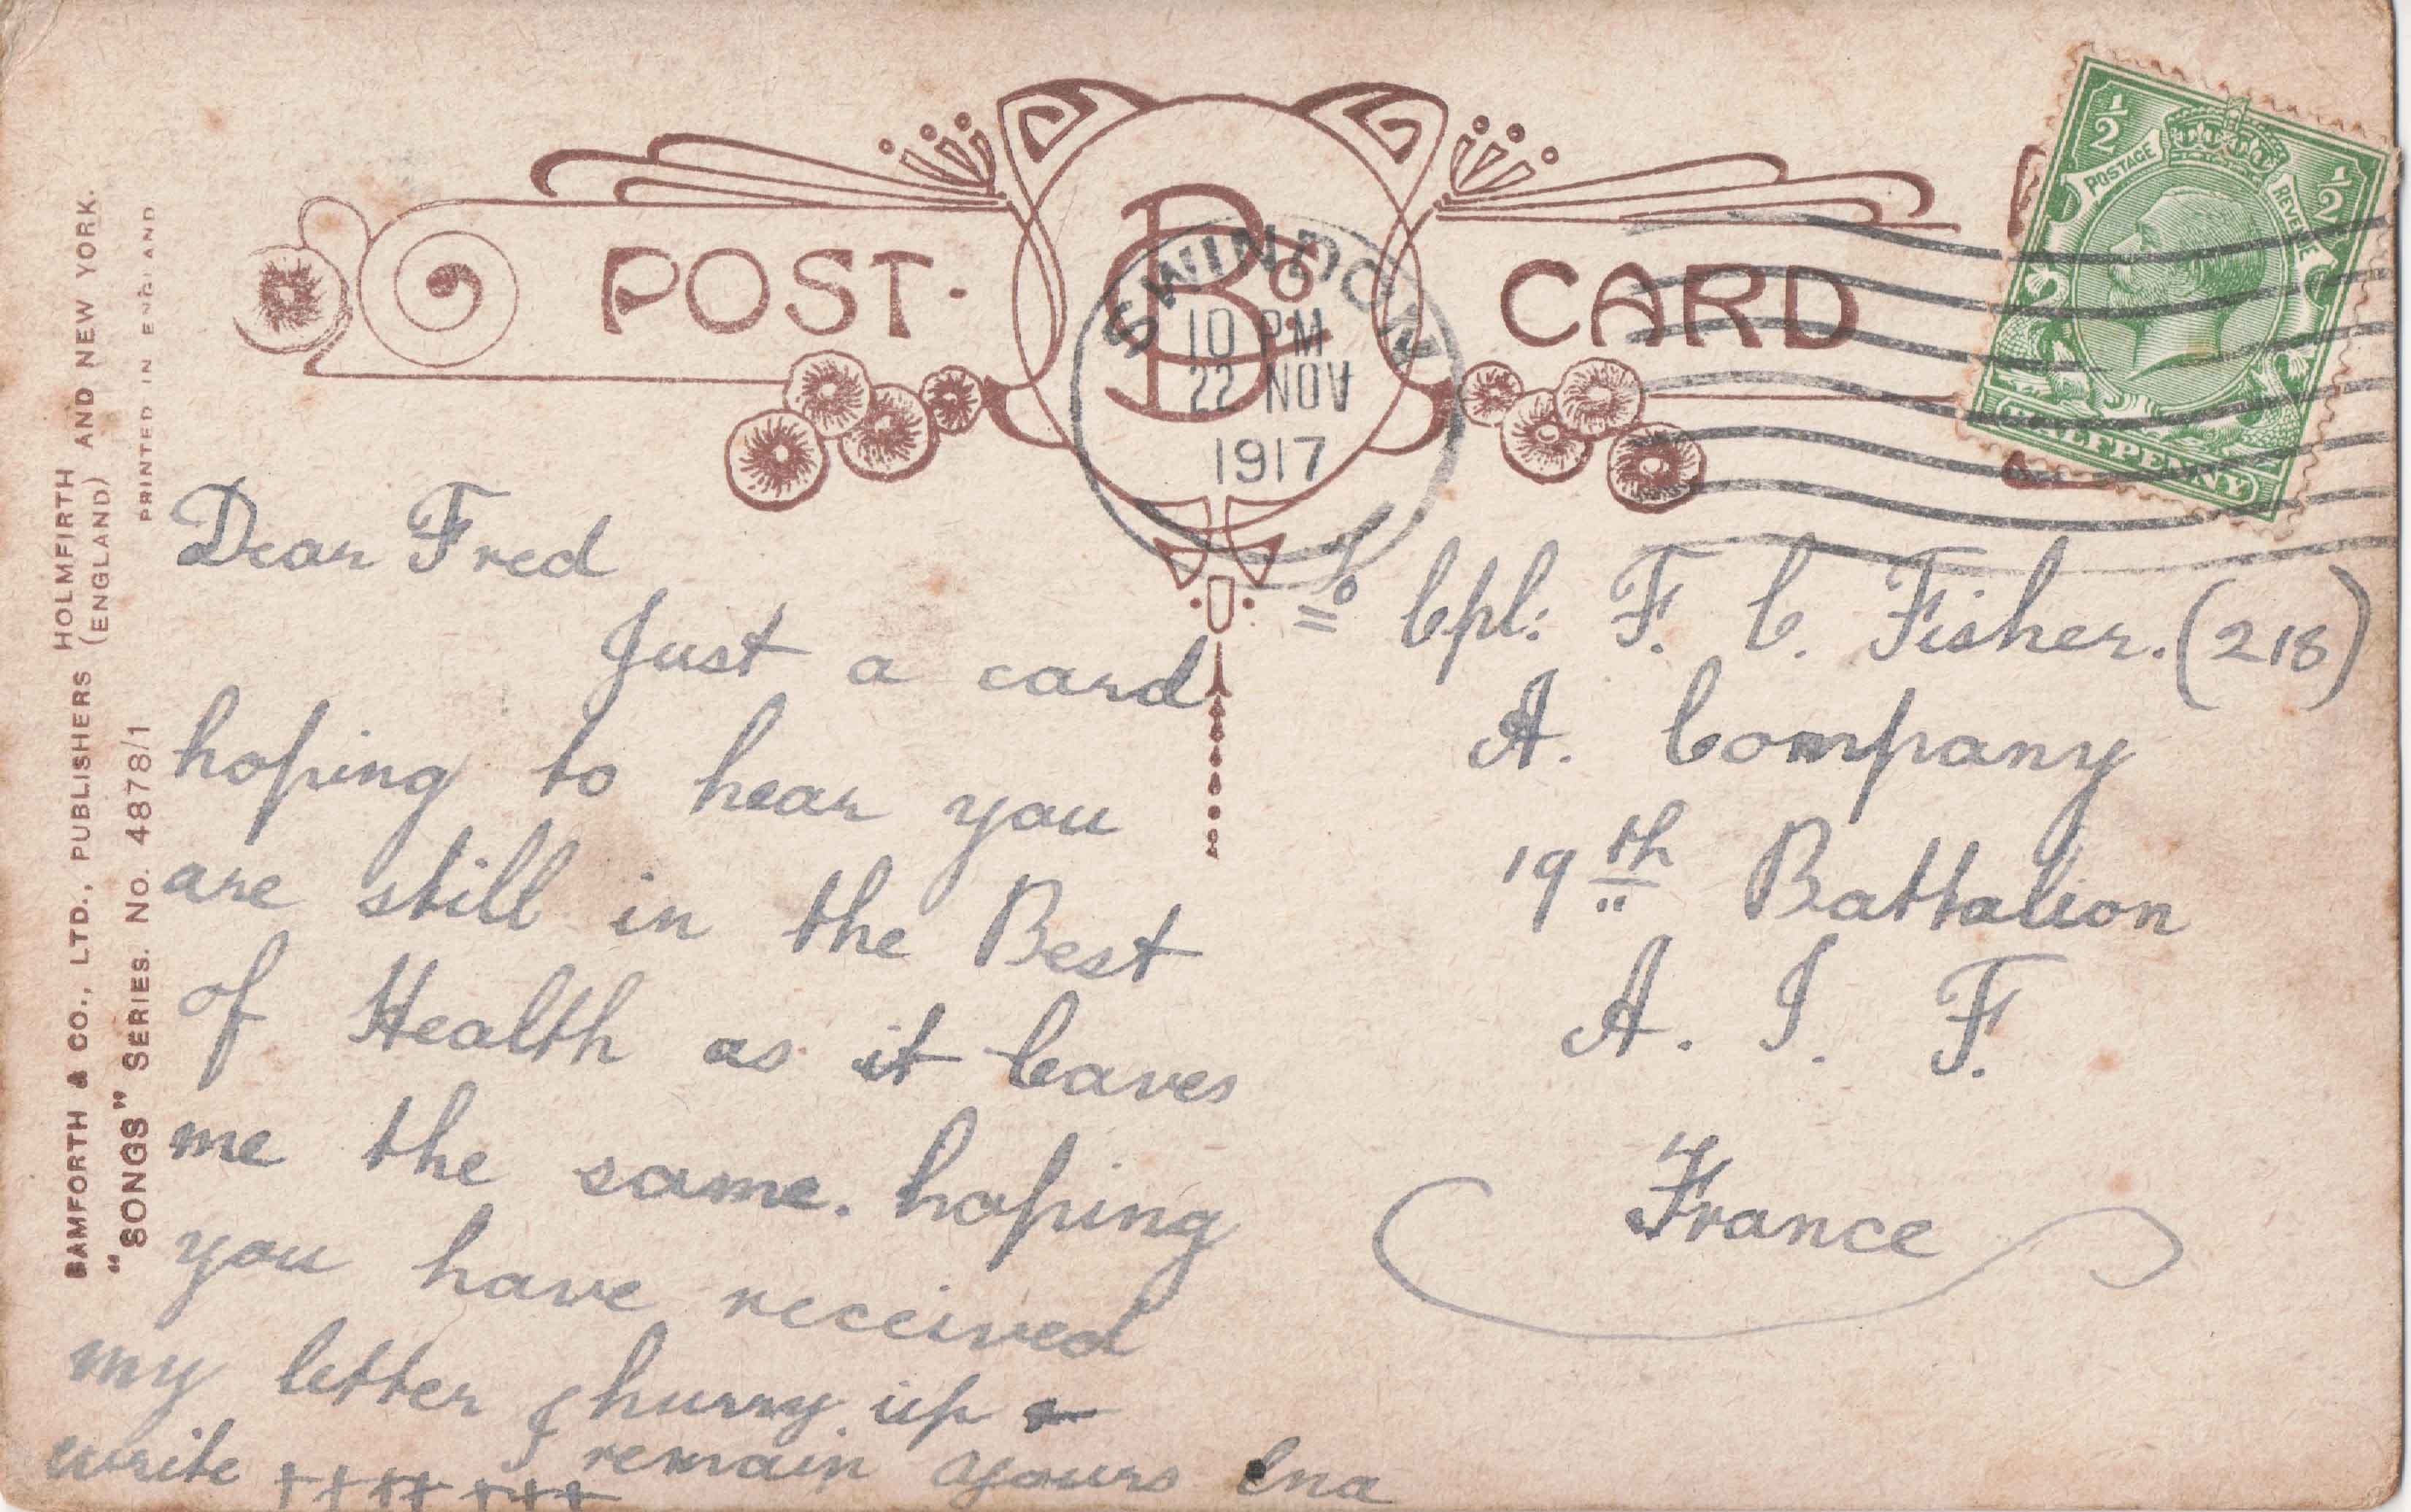 POST · CARD
B & Co
SWINDON
10 PM
22 NOV
1917
½ ½
POSTAGE REVENUE
HALFPENNY
BAMFORTH & CO., LTD., PUBLISHERS HOLMFIRTH (ENGLAND) AND NEW YORK.
"SONGS" SERIES. No. 4878/1
PRINTED IN ENGLAND
Dear Fred
Just a card
hoping to hear you
are still in the Best
of Health as it leaves
me the same. hoping
you have received
my letter hurry up &
write I remain yours Ena
++++ +++
To Cpl: F. C. Fisher. (218)
A. Company
19th Battalion
A. I. F.
France